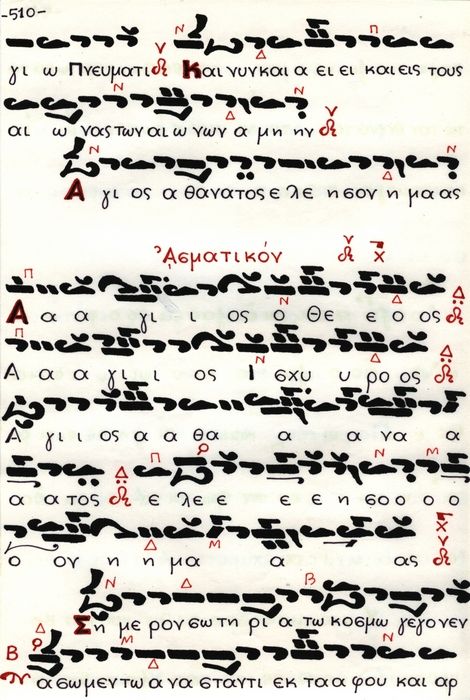 -510-
γι ω Πνευματι Και νυν και α ει ει και εις τους
αι ω νας των αι ω νων α μη ην
Α γι ος α θανατος ε λε η σον η μα ας
Ἀσματικόν
Α α α γι ι ος ο Θε ε ο ος
Α α α γι ι ος Ι σχυ υ ρο ος
Α γι ι ος α α θα α α να α
α α τος ε λε ε ε ε η σο ο ο ο
ο ον η η μα α ας
Ση με ρον σω τη ρι α τω κοσμω γεγονεν
ασωμεν τω α να σταντι εκ τα α φου και αρ